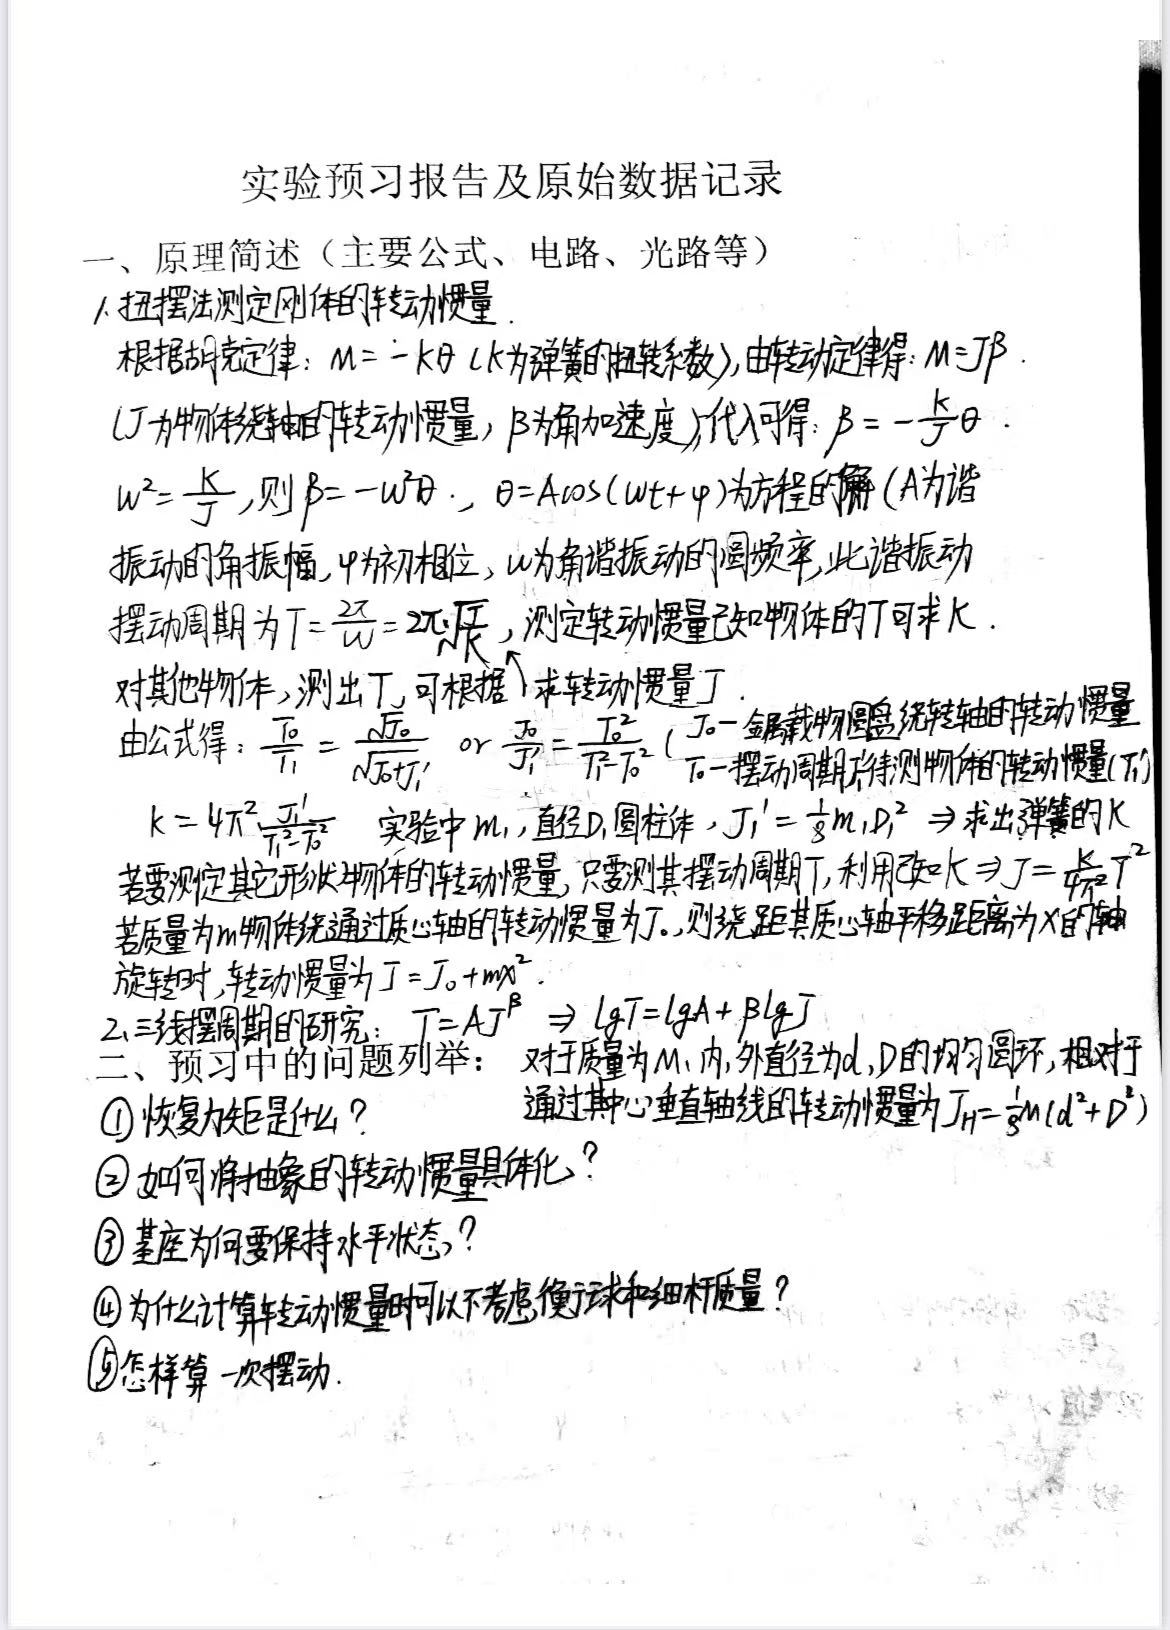 实验预习报告及原始数据记录
一、原理简述（主要公式、电路、光路等）
1.扭摆法测定刚体的转动惯量.
根据胡克定律: M=-Kθ (K为弹簧的扭转系数),由转动定律得: M=Jβ.
(J为物体绕轴的转动惯量, β为角加速度),代入可得: β=-K/J θ.
W²=K/J,则β=-W²θ., θ=Acos(Wt+φ)为方程的解(A为谐
振动的角振幅,φ为初相位,W为角谐振动的圆频率,此谐振动
摆动周期为T=2π/W=2π√J/√K,测定转动惯量已知物体的T可求K.
对其他物体,测出T,可根据↑求转动惯量J.
由公式得: T₀/T₁=√J₀/√J₀+J₁' or J₀/J₁'=T₀²/T₁²-T₀² ( J₀-金属载物圆盘绕转轴的转动惯量
T₀-摆动周期,待测物体的转动惯量(T₁')
k=4π² J₁'/T₁²-T₀² 实验中m₁,直径D₁圆柱体, J₁'=1/8 m₁D₁² ⇒求出弹簧的K
若要测定其它形状物体的转动惯量,只要测其摆动周期T,利用已知K⇒J=K/4π² T²
若质量为m物体绕通过质心轴的转动惯量为J₀,则绕距其质心轴平移距离为x的轴
旋转时,转动惯量为J=J₀+mx².
2.三线摆周期的研究: T=AJ^β ⇒ lgT=lgA+βlgJ
二、预习中的问题列举: 对于质量为M,内,外直径为d,D的均匀圆环,相对于
通过其中心垂直轴线的转动惯量为J_H=1/8 M(d²+D²)
①恢复力矩是什么?
②如何将抽象的转动惯量具体化?
③基座为何要保持水平状态?
④为什么计算转动惯量时可以不考虑衡球和细杆质量?
⑤怎样算一次摆动.